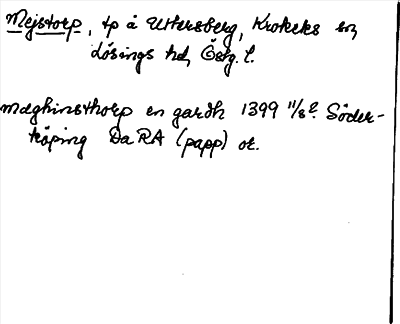 Mejstorp, tp å Uttersberg, Krokeks sn,
Lösings hd, Östg. l.
mæghinsthorp en gardh 1399 11/8? Söder-
köping DaRA (papp) or.